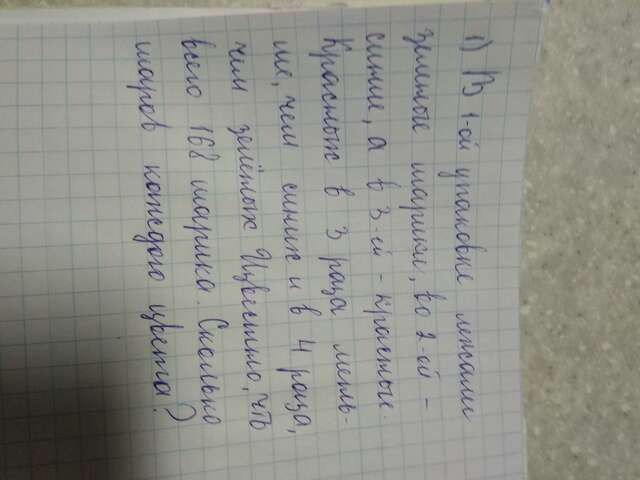 1) В 1-ой упаковке лежали
зелёные шарики, во 2-ой -
синие, а в 3-ей - красные.
Красных в 3 раза мень-
ше, чем синих и в 4 раза,
чем зелёных. Известно, что
всего 168 шарика. Сколько
шаров каждого цвета?